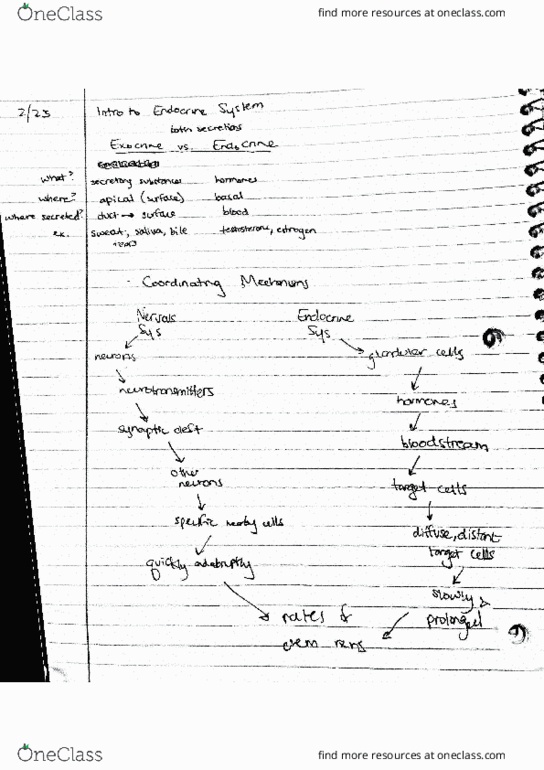 OneClass
find more resources at oneclass.com
2/23 Intro to Endocrine System
both secretions
Exocrine vs. Endocrine
what? secretory substances hormones
where? apical (surface) basal
where secreted? duct → surface blood
ex. sweat, saliva, bile testosterone, estrogen
tears
· Coordinating Mechanisms
Nervous Endocrine
Sys Sys
neurons glandular cells
neurotransmitters hormones
synaptic cleft bloodstream
other
neurons target cells
specific nearby cells diffuse, distant
target cells
quickly abruptly
slowly &
rates of prolonged
OneClass
find more resources at oneclass.com